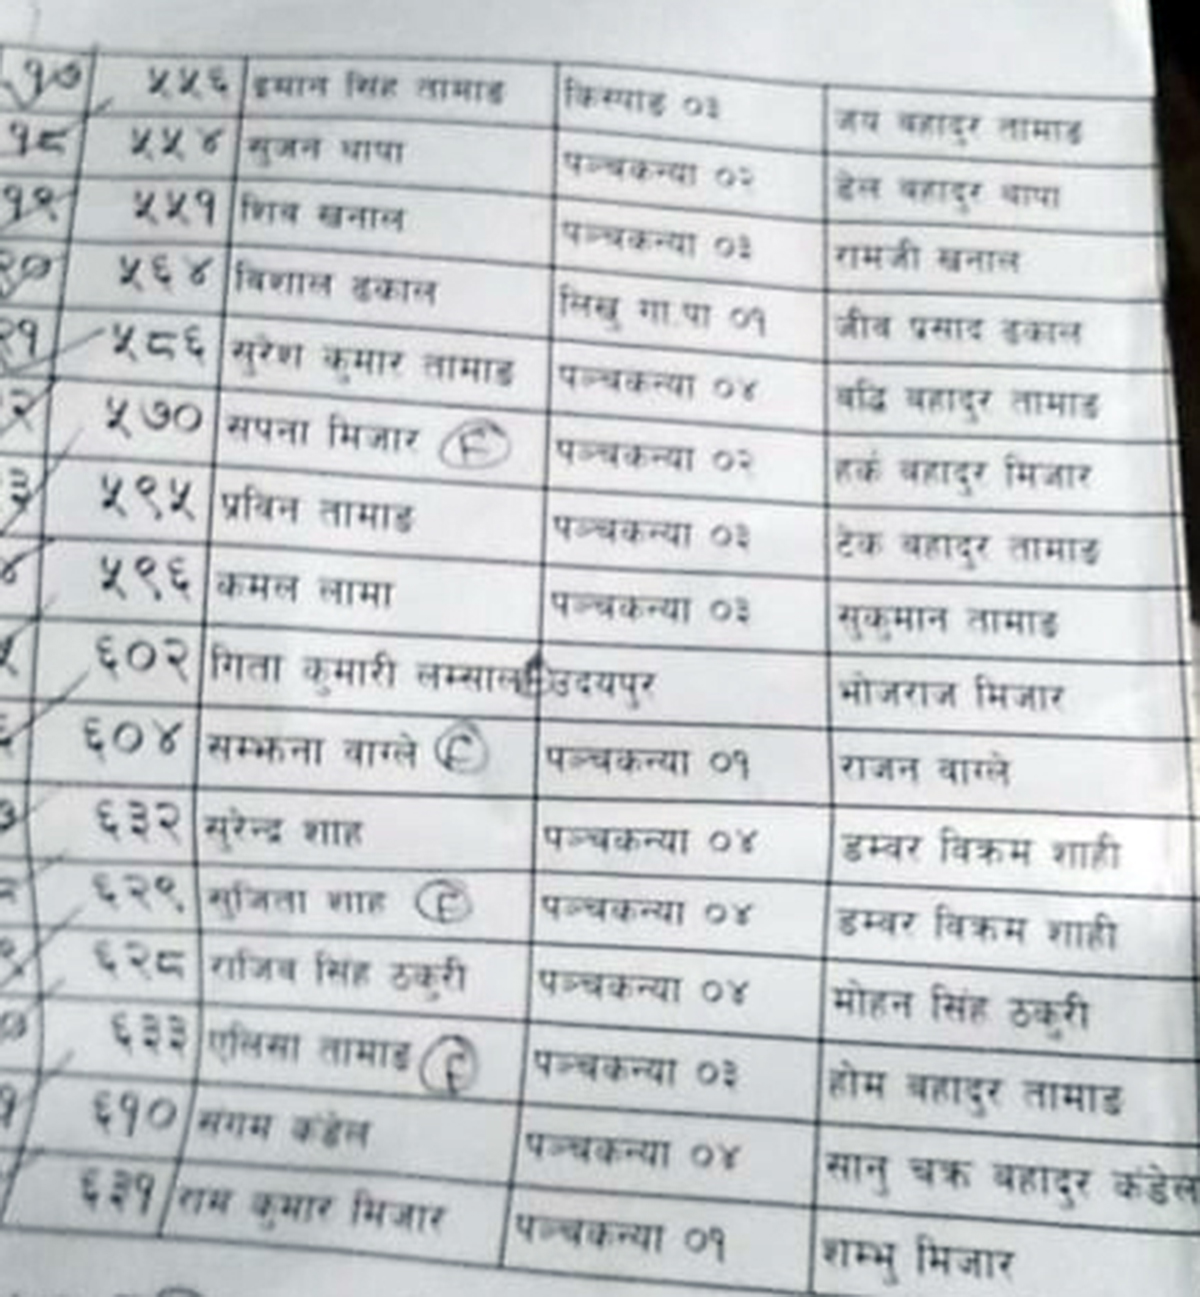 १७ ५५६ इमान सिंह तामाङ किस्पाङ ०३ जय बहादुर तामाङ
१८ ५५४ सुजन थापा पञ्चकन्या ०२ डेल बहादुर थापा
१९ ५५१ शिव खनाल पञ्चकन्या ०३ रामजी खनाल
२० ५६४ विशाल ढकाल लिखु गा.पा ०१ जीव प्रसाद ढकाल
२१ ५८६ सुरेश कुमार तामाङ पञ्चकन्या ०४ बद्धि बहादुर तामाङ
२ ५७० सपना मिजार F पञ्चकन्या ०२ हर्क बहादुर मिजार
३ ५९५ प्रविन तामाङ पञ्चकन्या ०३ टेक बहादुर तामाङ
४ ५९६ कमल लामा पञ्चकन्या ०३ सुकुमान तामाङ
५ ६०२ गिता कुमारी लम्साल उदयपुर भोजराज मिजार
६ ६०४ सम्झना वाग्ले F पञ्चकन्या ०१ राजन वाग्ले
७ ६३२ सुरेन्द्र शाह पञ्चकन्या ०४ डम्वर विक्रम शाही
८ ६२९ सुजिता शाह F पञ्चकन्या ०४ डम्वर विक्रम शाही
९ ६२८ राजिव सिंह ठकुरी पञ्चकन्या ०४ मोहन सिंह ठकुरी
० ६३३ एलिसा तामाङ F पञ्चकन्या ०३ होम बहादुर तामाङ
१ ६१० संगम कंडेल पञ्चकन्या ०४ सानु चक्र बहादुर कंडेल
६३१ राम कुमार मिजार पञ्चकन्या ०१ शम्भु मिजार